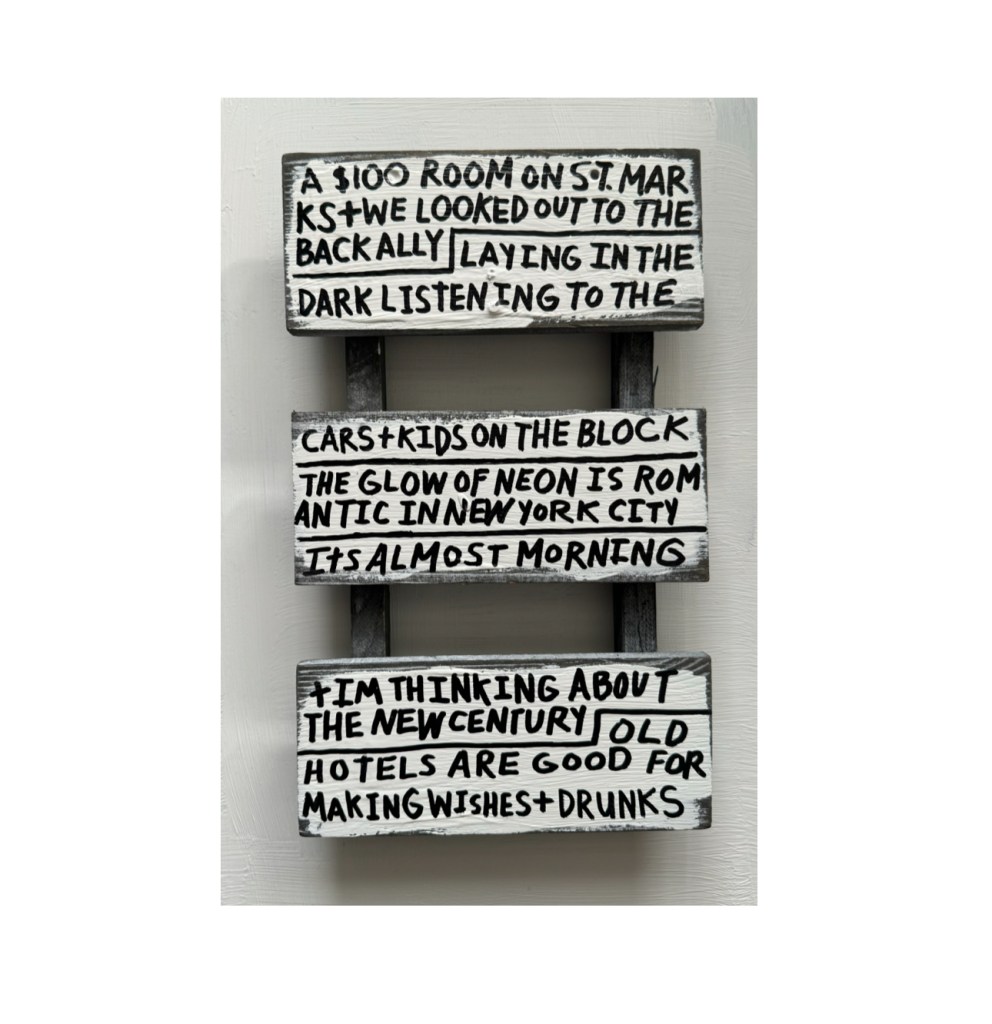 A $100 ROOM ON ST. MAR
KS+WE LOOKED OUT TO THE
BACK ALLY LAYING IN THE
DARK LISTENING TO THE
CARS+KIDS ON THE BLOCK
THE GLOW OF NEON IS ROM
ANTIC IN NEW YORK CITY
ItS ALMOST MORNING
+IM THINKING ABOUT
THE NEW CENTURY OLD
HOTELS ARE GOOD FOR
MAKING WISHES+DRUNKS